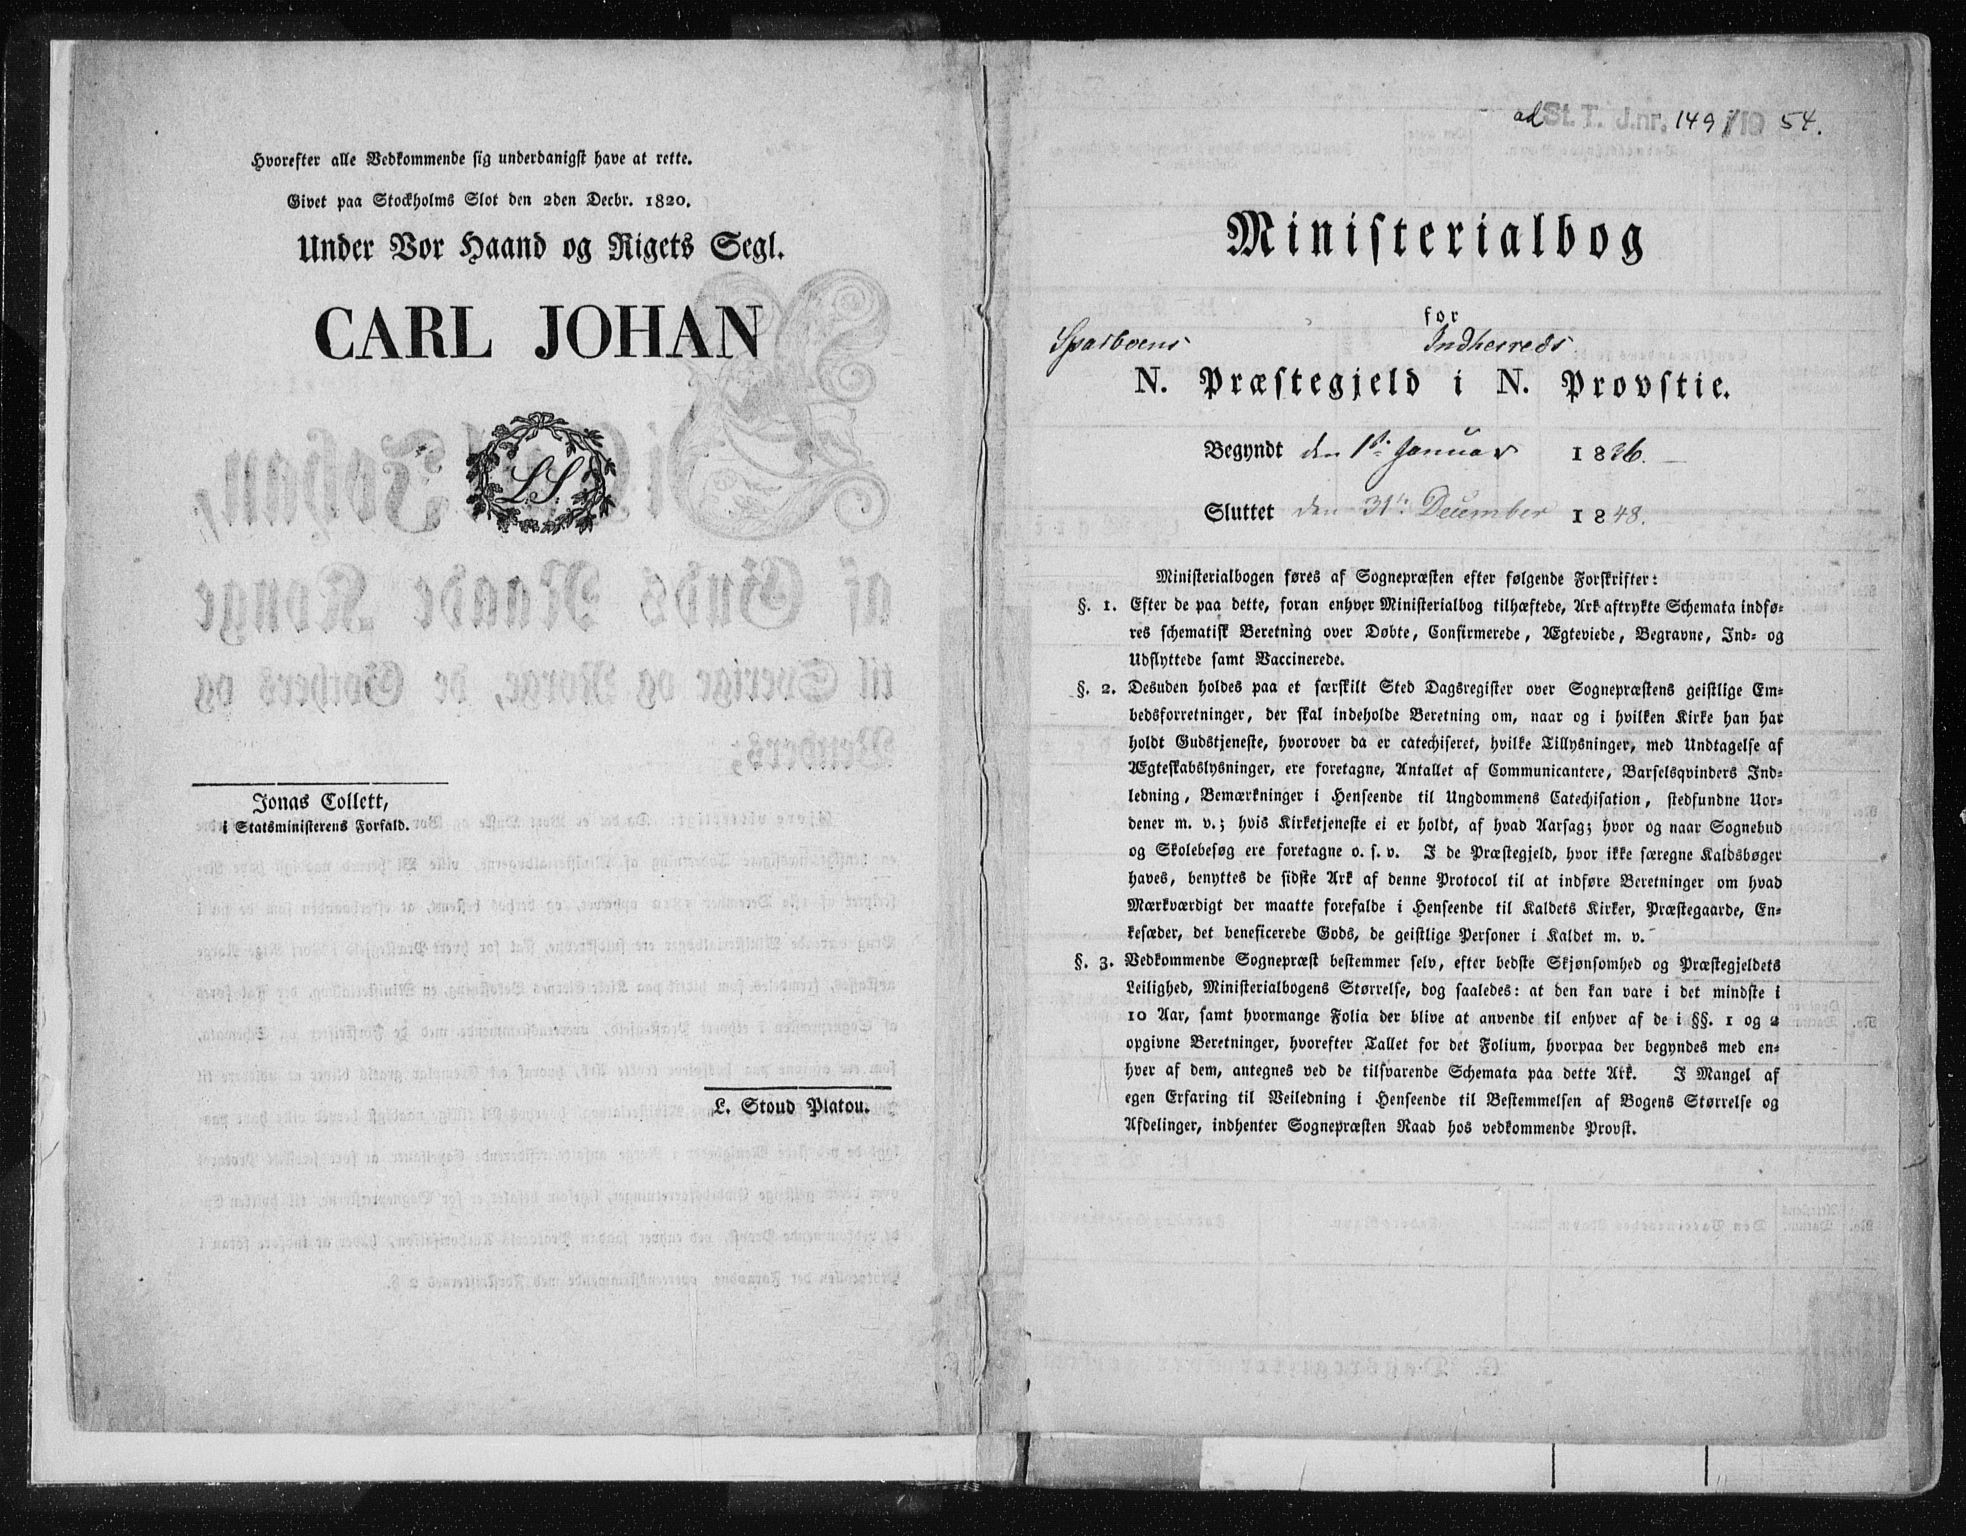 Hvorefter alle Vedkommende sig underdanigst have at rette.
Givet paa Stockholms Slot den 2den Decbr. 1820.
Under Vor Haand og Rigets Segl.
CARL JOHAN
L. S.
Jonas Collett,
i Statsministerens Forfald.
L. Stoud Platou.
ad St. T. J.nr. 149 / 19 54.
Ministerialbog
for
Sparboens Indherreds
N. Præstegjeld i N. Provstie.
Begyndt den 1ste Januar 1826.
Sluttet den 31te December 1848.
Ministerialbogen føres af Sognepræsten efter følgende Forskrifter:
§. 1. Efter de paa dette, foran enhver Ministerialbog tilhæftede, Ark aftrykte Schemata indfø-
res schematisk Beretning over Døbte, Confirmerede, Ægteviede, Begravne, Ind- og
Udflyttede samt Vaccinerede.
§. 2. Desuden holdes paa et særskilt Sted Dagsregister over Sognepræstens geistlige Em-
bedsforretninger, der skal indeholde Beretning om, naar og i hvilken Kirke han har
holdt Gudstjeneste, hvorover da er catechiseret, hvilke Tillysninger, med Undtagelse af
Ægteskabslysninger, ere foretagne, Antallet af Communicantere, Barselsqvinders Ind-
ledning, Bemærkninger i Henseende til Ungdommens Catechisation, stedfundne Uor-
dener m. v.; hvis Kirketjeneste ei er holdt, af hvad Aarsag; hvor og naar Sognebud
og Skolebesøg ere foretagne o. s. v. I de Præstegjeld, hvor ikke særegne Kaldsbøger
haves, benyttes de sidste Ark af denne Protocol til at indføre Beretninger om hvad
Mærkværdigt der maatte forefalde i Henseende til Kaldets Kirker, Præstegaarde, En-
kesæder, det beneficerede Gods, de geistlige Personer i Kaldet m. v.
§. 3. Vedkommende Sognepræst bestemmer selv, efter bedste Skjønsomhed og Præstegjeldets
Leilighed, Ministerialbogens Størrelse, dog saaledes: at den kan vare i det mindste i
10 Aar, samt hvormange Folia der blive at anvende til enhver af de i §§. 1 og 2
opgivne Beretninger, hvorefter Tallet for det Folium, hvorpaa der begyndes med en-
hver af dem, antegnes ved de tilsvarende Schemata paa dette Ark. I Mangel af
egen Erfaring til Veiledning i Henseende til Bestemmelsen af Bogens Størrelse og
Afdelinger, indhenter Sognepræsten Raad hos vedkommende Provst.